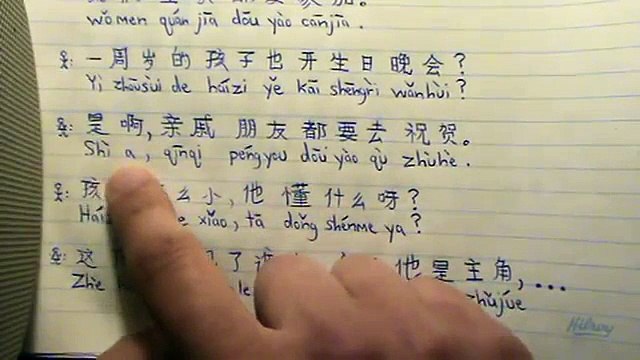 wǒmen quán jiā dōu yào cānjiā.
一周岁的孩子也开生日晚会?
Yī zhōusuì de háizi yě kāi shēngrì wǎnhuì?
是啊,亲戚朋友都要去祝贺。
Shì a, qīnqi péngyou dōu yào qù zhùhè.
孩 么小,他懂什么呀?
xiǎo, tā dǒng shénme ya?
这 了 他是主角,...
Zhè le zhǔjué
Hillary